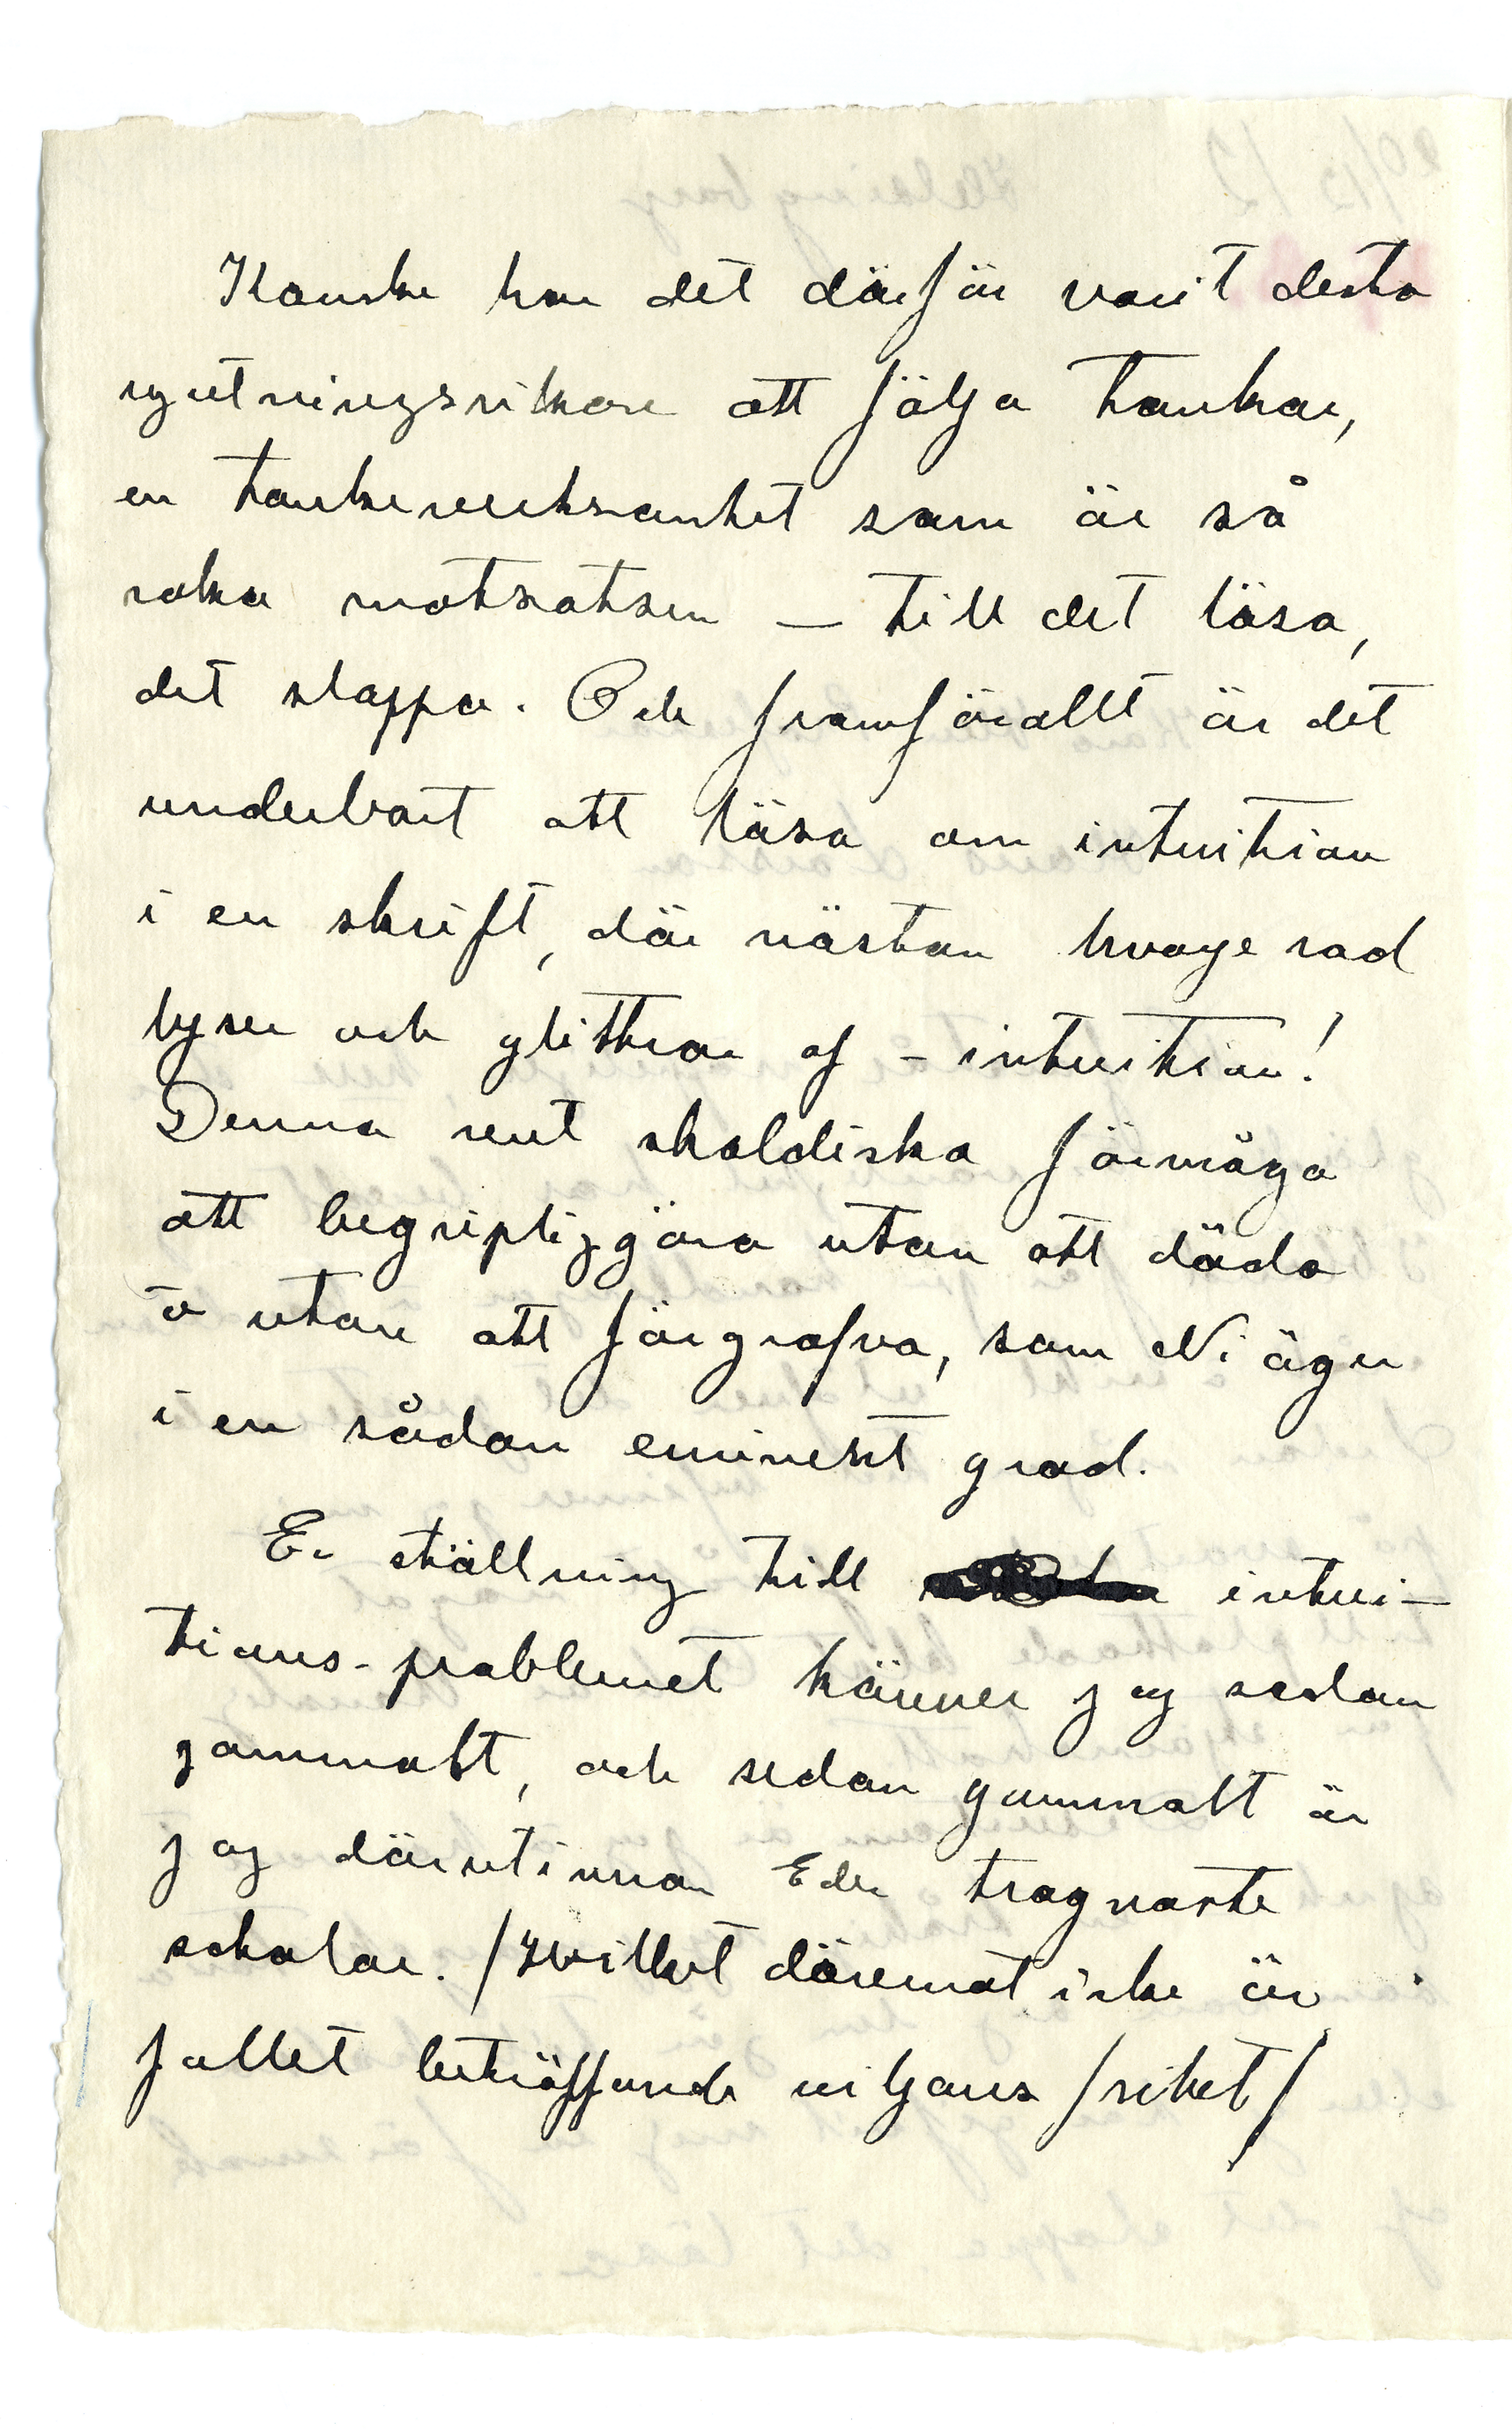 Kanske har det därför varit desto
njutningsrikare att följa tankar,
en tankeverksamhet som är så
raka motsatsen – till det lösa,
det slappa. Och framförallt är det
underbart att läsa om intuition
i en skrift, där nästan hvarje rad
lyser och glittrar af – intuition!
Denna rent skaldiska förmåga
att begripliggöra utan att döda
o utan att förgrofva, som Ni äger
i en sådan eminent grad.
Er ställning till intui–
tions-problemet känner jag sedan
gammalt, och sedan gammalt är
jag därutinnan Eder trognaste
scholar. /Hvilket däremot icke är
fallet beträffande viljans frihet/